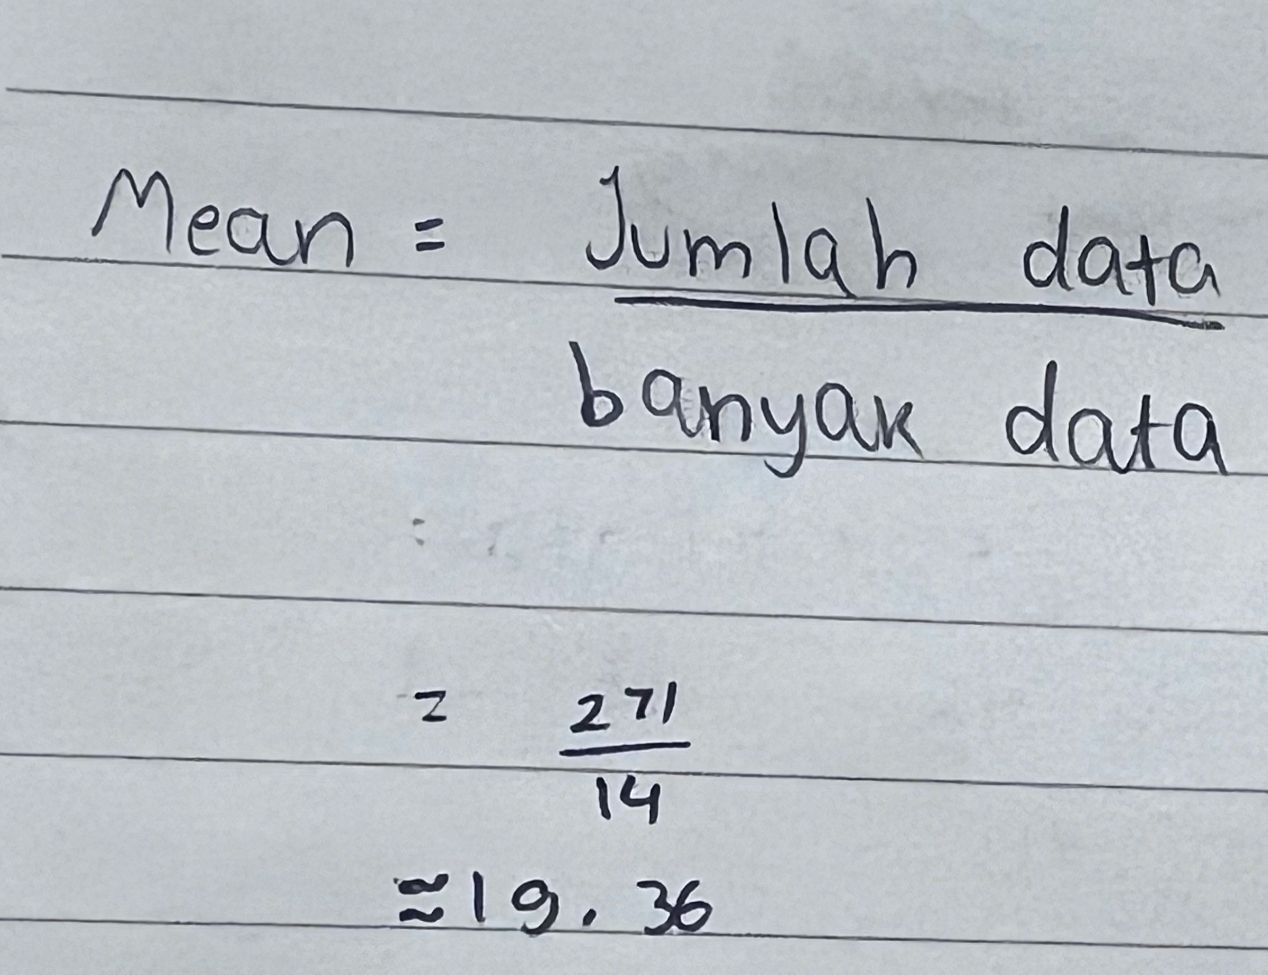 Mean = Jumlah data
banyak data
= 271
14
≈ 19.36